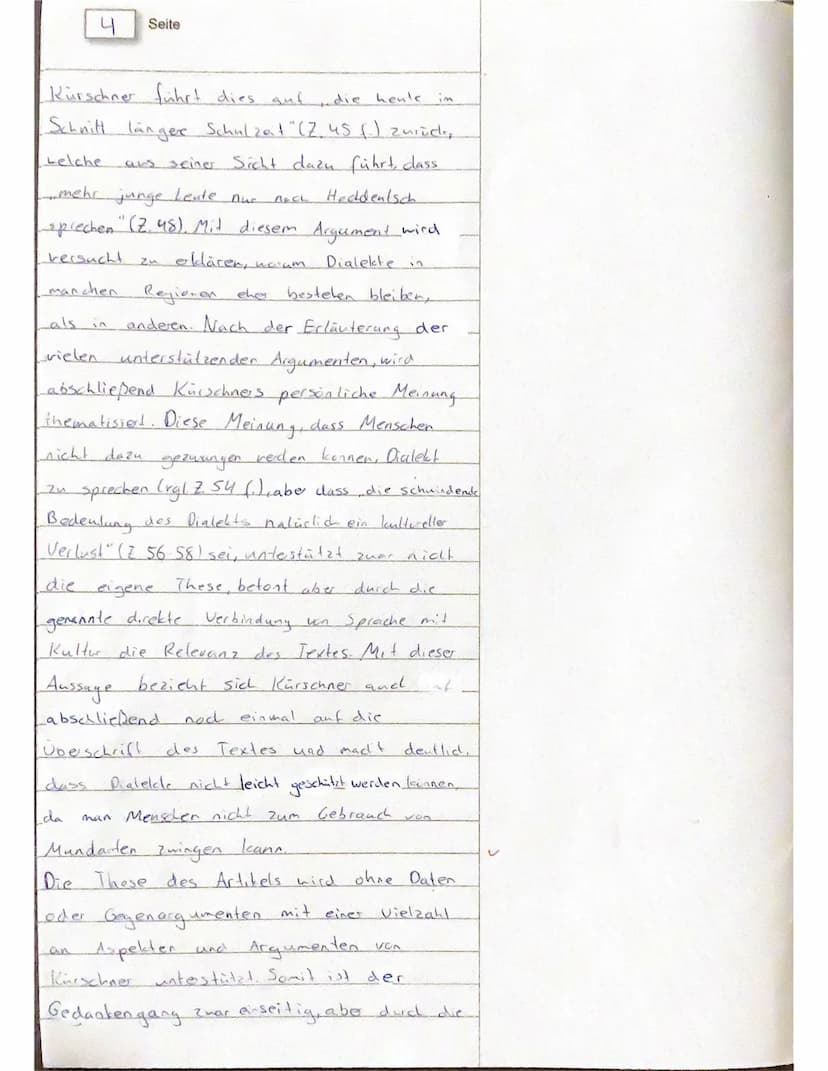 4 Seite
Kürschner führt dies auf „die heute im
Schnitt länger Schulzeit" (Z. 45 f.) zurück,
welche aus seiner Sicht dazu führt, dass
„mehr junge Leute nur noch Hochdeutsch
sprechen" (Z. 48). Mit diesem Argument wird
versucht zu erklären, warum Dialekte in
manchen Regionen eher bestehen bleiben,
als in anderen. Nach der Erläuterung der
vielen unterstützenden Argumenten, wird
abschließend Kürschners persönliche Meinung
thematisiert. Diese Meinung, dass Menschen
nicht dazu gezwungen werden können, Dialekt
zu sprechen (vgl. Z. 54 f.), aber dass „die schwindende
Bedeutung des Dialekts natürlich ein kultureller
Verlust" (Z. 56-58) sei, unterstützt zwar nicht
die eigene These, betont aber durch die
genannte direkte Verbindung von Sprache mit
Kultur die Relevanz des Textes. Mit dieser
Aussage bezieht sich Kürschner auch
abschließend noch einmal auf die
Überschrift des Textes und macht deutlich,
dass Dialekte nicht leicht geschützt werden können,
da man Menschen nicht zum Gebrauch von
Mundarten zwingen kann.
Die These des Artikels wird ohne Daten
oder Gegenargumenten mit einer Vielzahl
an Aspekten und Argumenten von
Kürschner unterstützt. Somit ist der
Gedankengang zwar einseitig, aber durch die